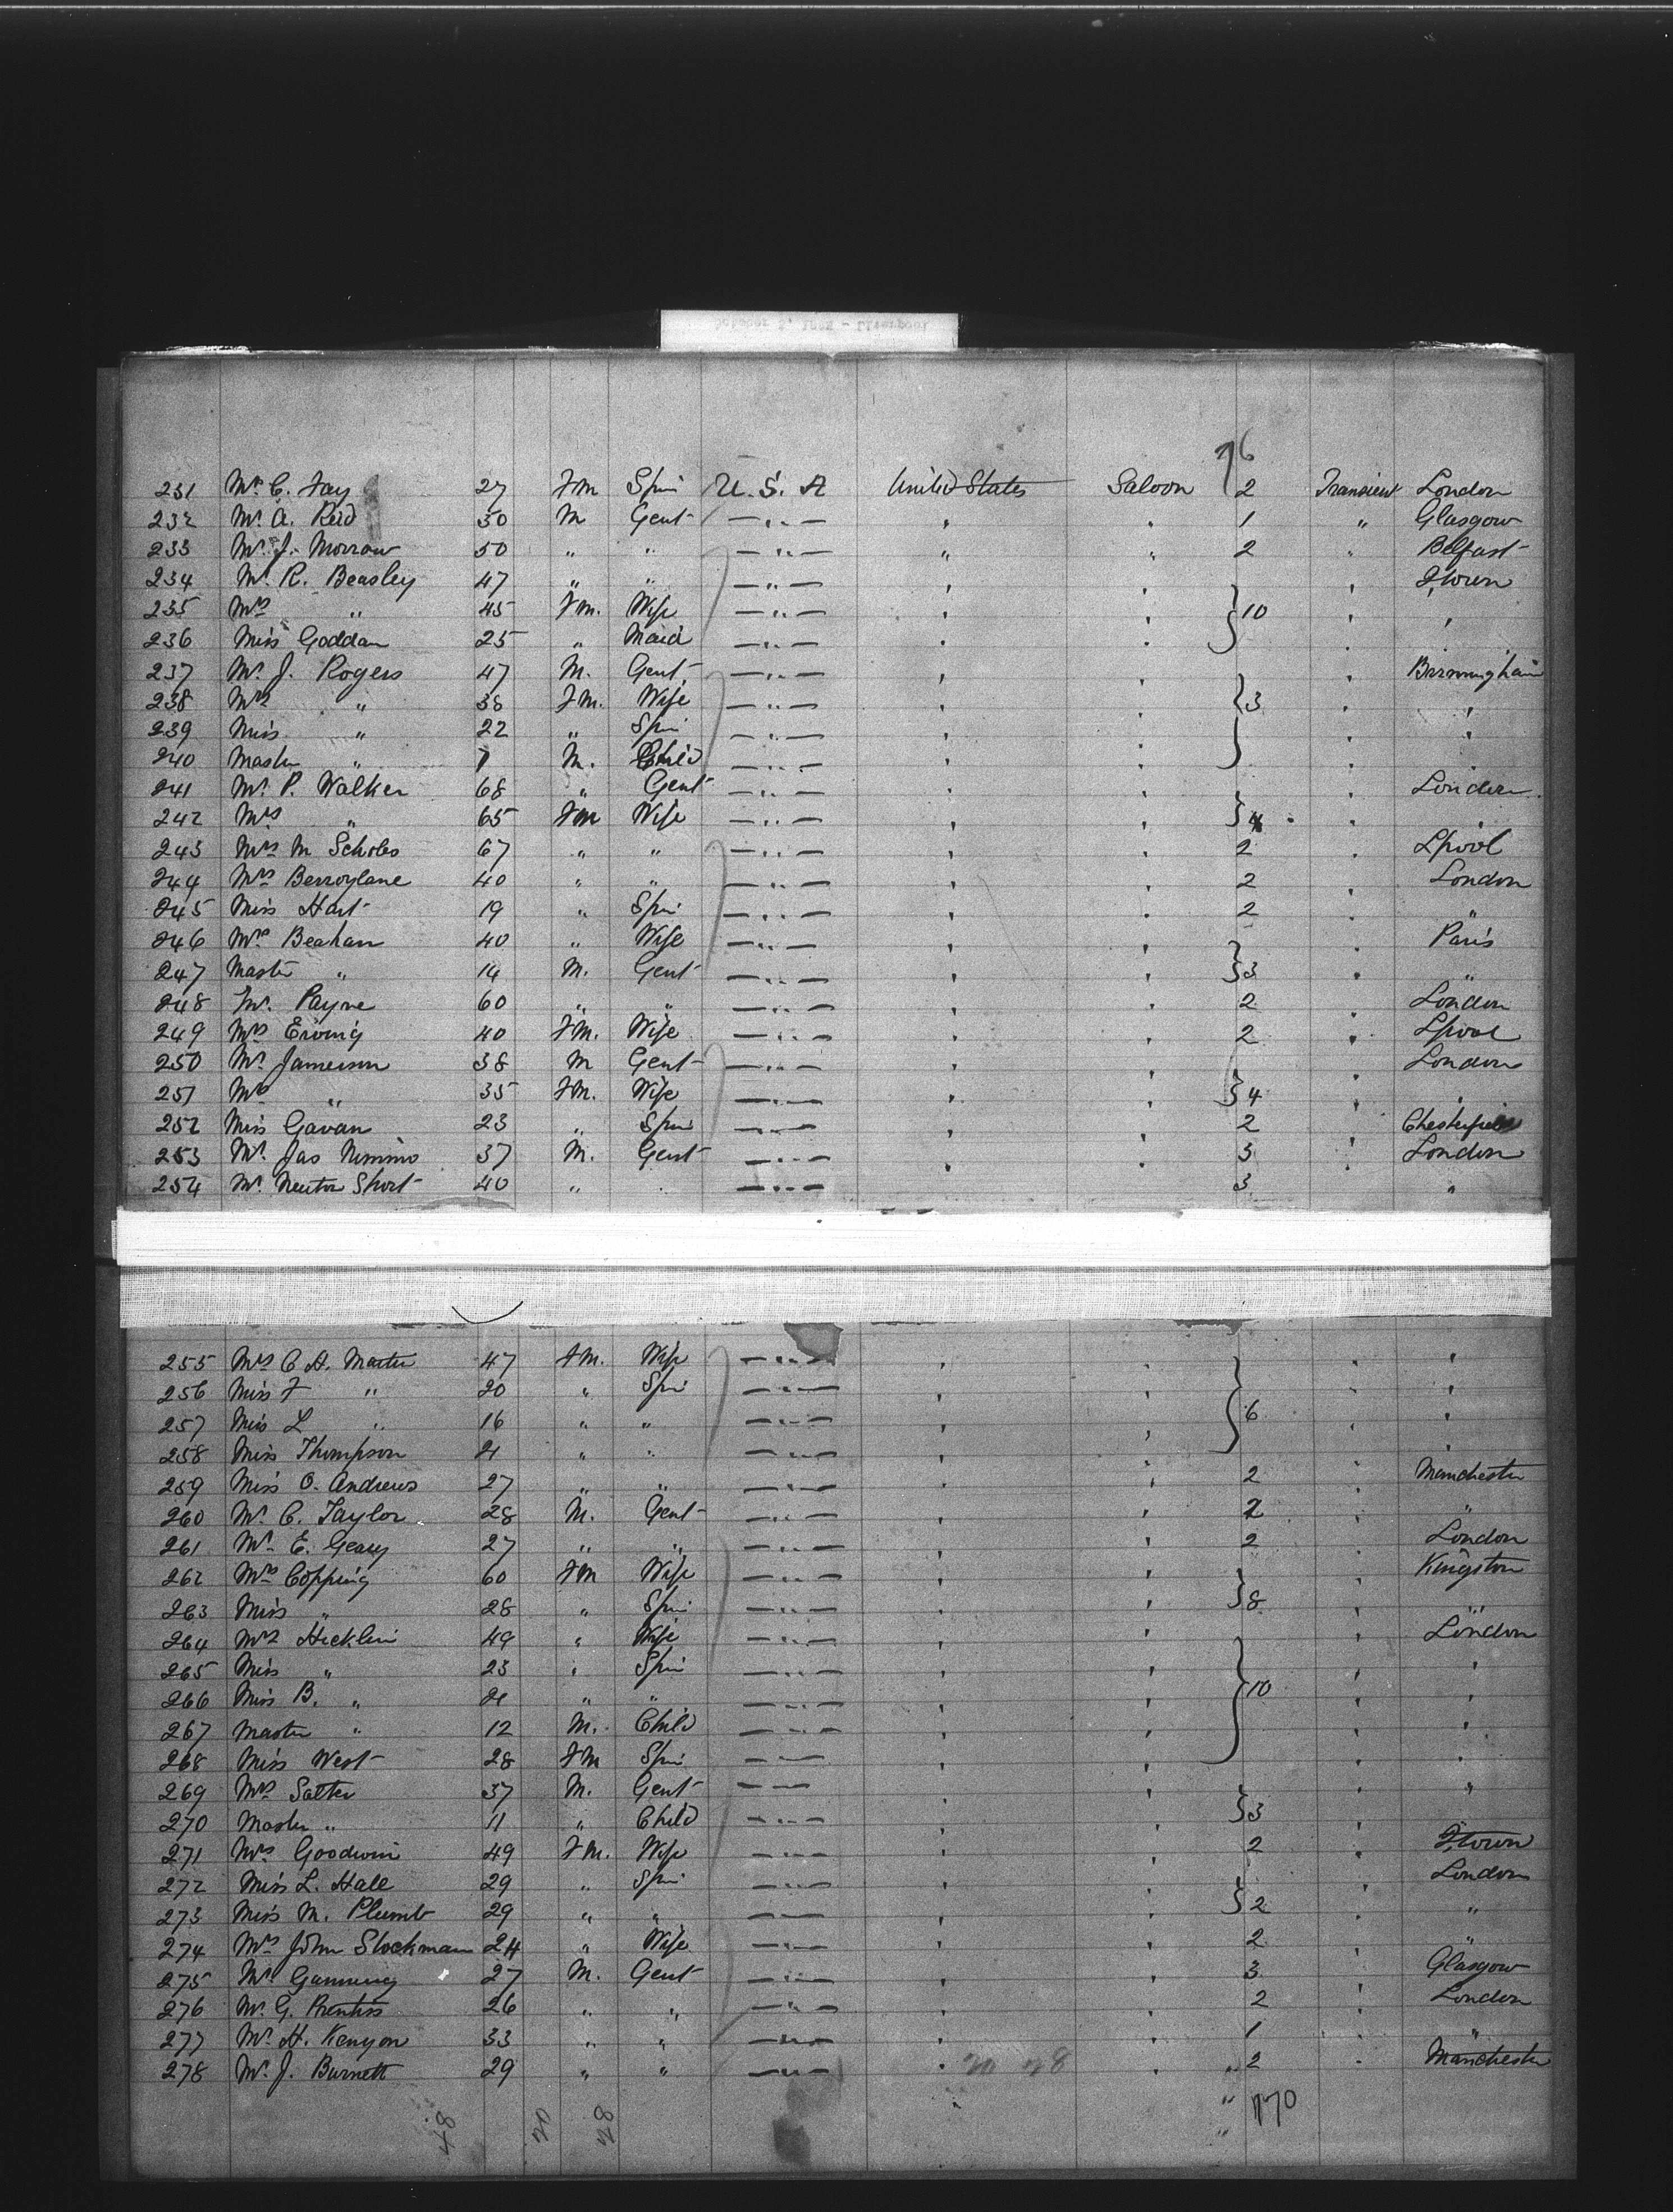 October 3, 1892 - Liverpool
76
231 Mrs C. Fay 27 Fm Spin U.S.A United States Saloon 2 Transient London
232 Mr A. Reid 30 M Gent — „ — „ „ 1 „ Glasgow
233 Mr J. Morrow 50 „ „ — „ — „ „ 2 „ Belfast
234 Mr R. Beasley 47 „ „ — „ — „ „ „ Qtown
235 Mrs „ 45 Fm. Wife — „ — „ „ 10 „ „
236 Miss Goddan 25 „ Maid — „ — „ „ „
237 Mr J. Rogers 47 M. Gent — „ — „ „ „ Birmingham
238 Mrs „ 38 Fm. Wife — „ — „ „ 3 „ „
239 Miss „ 22 „ Spin — „ — „ „ „ „
240 Master „ 7 M. Child — „ — „ „ „ „
241 Mr P. Walker 68 „ Gent — „ — „ „ „ London
242 Mrs „ 65 Fm Wife — „ — „ „ 4 „ „
243 Mrs M Scholes 67 „ „ — „ — „ „ 2 „ Lpool
244 Mrs Berroylane 40 „ „ — „ — „ „ 2 „ London
245 Miss Hart 19 „ Spin — „ — „ „ 2 „ „
246 Mrs Beahan 40 „ Wife — „ — „ „ „ Paris
247 Master „ 14 M. Gent — „ — „ „ 3 „ „
248 Mr. Payne 60 „ „ — „ — „ „ 2 „ London
249 Mrs Erving 40 Fm. Wife — „ — „ „ 2 „ Lpool
250 Mr Jameson 38 M Gent — „ — „ „ „ London
251 Mrs „ 35 Fm. Wife — „ — „ „ 4 „ „
252 Miss Gavan 23 „ Spin — „ — „ „ 2 „ Chesterfield
253 Mr. Jas Nimmo 37 M. Gent — „ — „ „ 3 „ London
254 Mr. Neuton Short 40 „ „ — „ — 3 „
255 Mrs C A. Martin 47 Fm. Wife — „ — „ „ „ „
256 Miss F „ 20 „ Spin — „ — „ „ „ „
257 Miss L „ 16 „ „ — „ — „ „ 6 „ „
258 Miss Thompson 21 „ „ — „ — „ „ „ „
259 Miss O. Andrews 27 „ „ — „ — „ „ 2 „ Manchester
260 Mr C. Taylor 28 M. Gent — „ — „ „ 2 „ „
261 Mr E. Geary 27 „ „ — „ — „ „ 2 „ London
262 Mrs Copping 60 Fm Wife — „ — „ „ „ Kingston
263 Miss „ 28 „ Spin — „ — „ „ 8 „ „
264 Mrs Hicklin 49 „ Wife — „ — „ „ „ London
265 Miss „ 23 „ Spin — „ — „ „ „ „
266 Miss B. „ 21 „ „ — „ — „ „ 10 „ „
267 Master „ 12 M. Child — „ — „ „ „ „
268 Miss West 28 Fm Spin — „ — „ „ „ „
269 Mr Salter 37 M. Gent — „ — „ „ „ „
270 Master „ 11 „ Child — „ — „ „ 3 „ „
271 Mrs Goodwin 49 Fm. Wife — „ — „ „ 2 „ Qtown
272 Miss L. Hall 29 „ Spin — „ — „ „ „ London
273 Miss M. Plumb 29 „ „ — „ — „ „ 2 „ „
274 Mrs John Stockman 24 „ Wife — „ — „ „ 2 „ „
275 Mr Gunning 27 M. Gent — „ — „ „ 3 „ Glasgow
276 Mr. G. Prentiss 26 „ „ — „ — „ „ 2 „ London
277 Mr. H. Kenyon 33 „ „ — „ — „ „ 1 „ „
278 Mr. J. Burnett 29 „ „ — „ — „ 20 28 „ 2 „ Manchester
48 20 28 „ 170